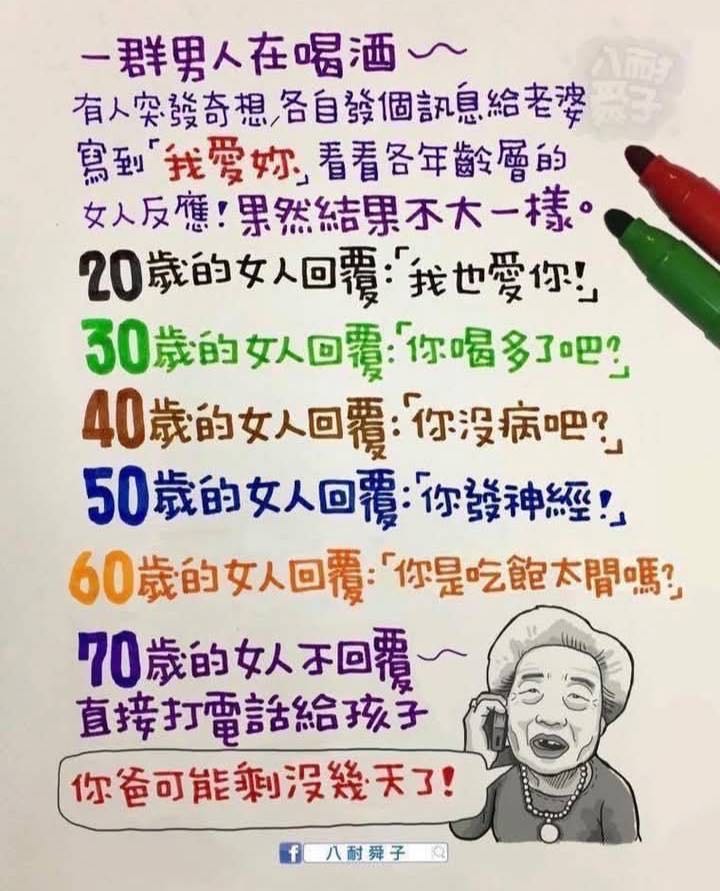 一群男人在喝酒～
有人突發奇想,各自發個訊息給老婆
寫到「我愛妳」看看各年齡層的
女人反應!果然結果不大一樣。
20歲的女人回覆:「我也愛你!」
30歲的女人回覆:「你喝多了吧?」
40歲的女人回覆:「你沒病吧?」
50歲的女人回覆:「你發神經!」
60歲的女人回覆:「你是吃飽太閒嗎?」
70歲的女人不回覆～
直接打電話給孩子
你爸可能剩沒幾天了!
f 八耐舜子
八耐
舜子